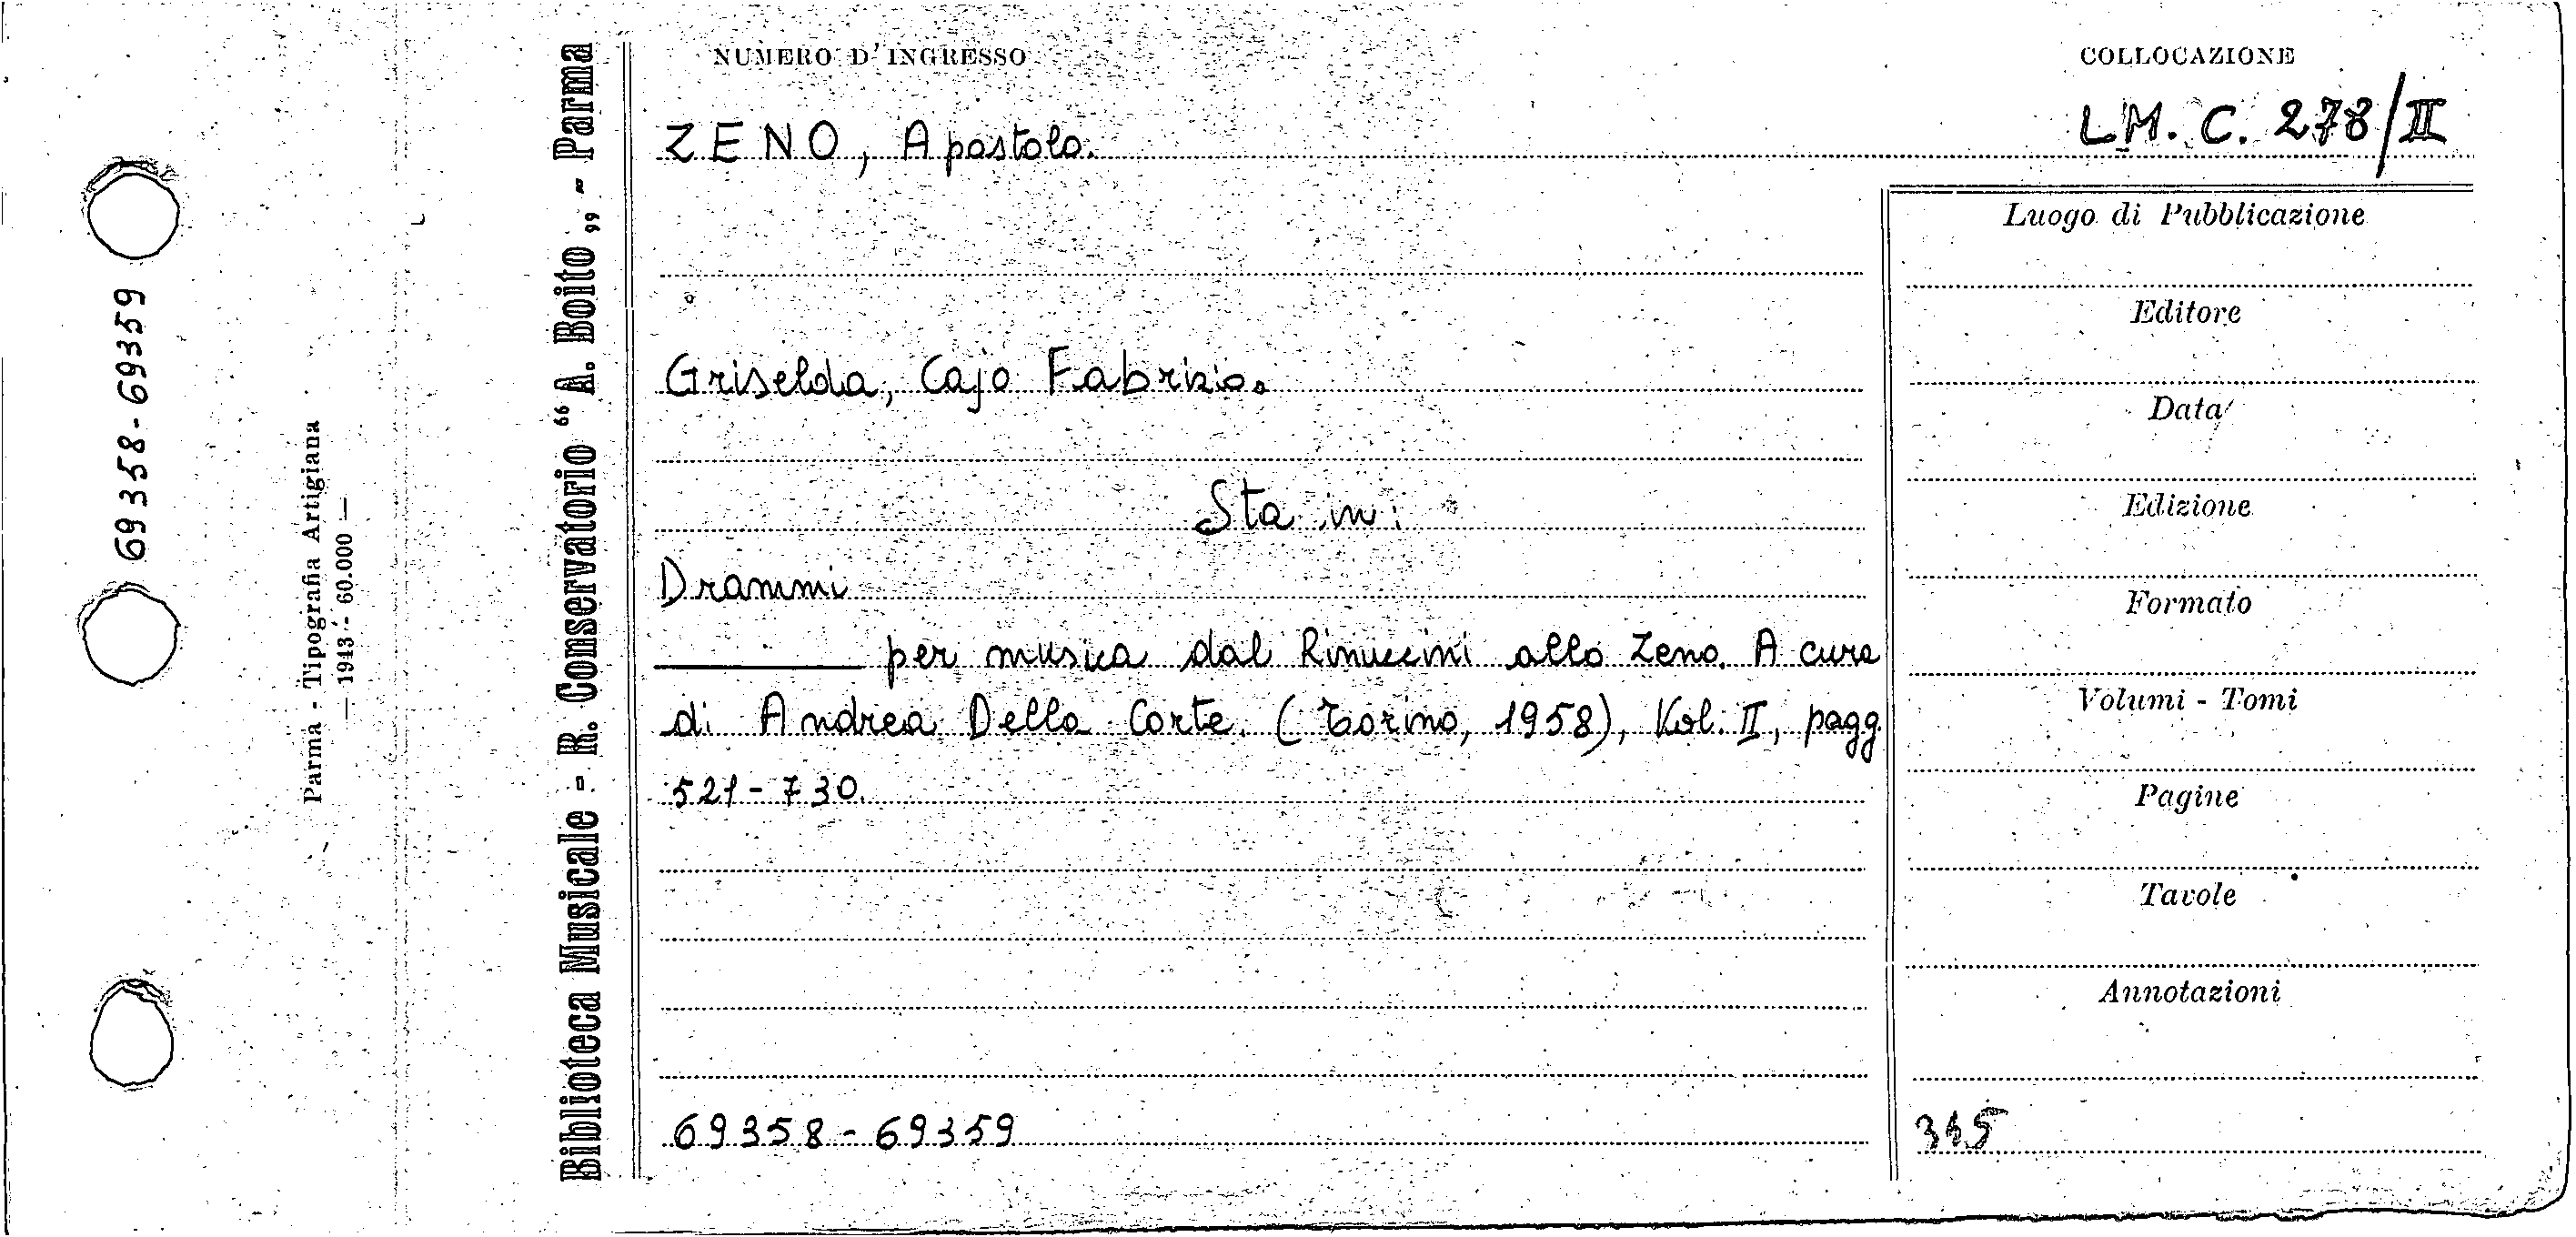 69358-69359
Parma - Tipografia Artigiana
— 1943 - 60.000 —
Biblioteca Musicale - R. Conservatorio “ A. Boito „ - Parma
NUMERO D'INGRESSO
COLLOCAZIONE
ZENO, Apostolo.
LM. C. 278/II
Griselda, Cajo Fabrizio.
Sta in:
Drammi
per musica dal Rinuccini allo Zeno. A cura
di Andrea Della Corte. (Torino, 1958), Vol. II, pagg.
521-730.
69358-69359
Luogo di Pubblicazione
Editore
Data
Edizione
Formato
Volumi - Tomi
Pagine
Tavole
Annotazioni